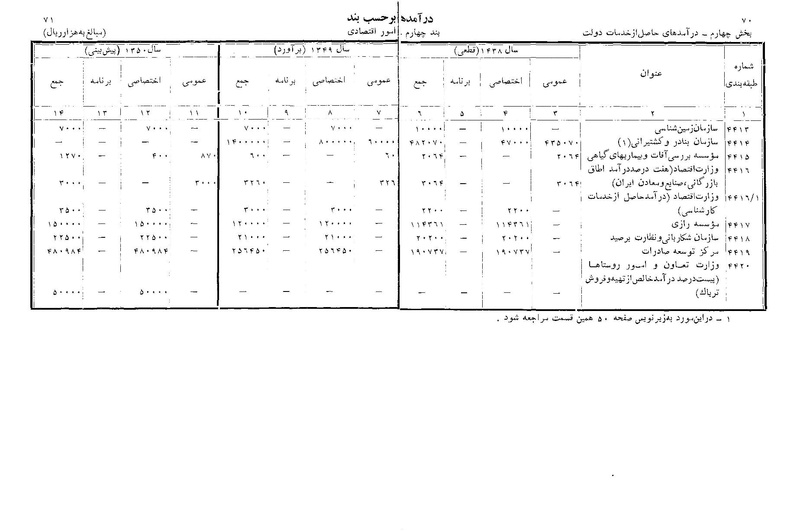 ۷۰ درآمدها برحسب بند ۷۱
بخش چهارم – درآمدهای حاصل از خدمات دولت بند چهارم – امور اقتصادی (مبالغ به هزار ریال)
شماره طبقه‌بندی عنوان سال ۱۴۳۸ (قطعی) سال ۱۳۴۹ (برآورد) سال ۱۳۵۰ (پیش‌بینی)
عمومی اختصاصی برنامه جمع عمومی اختصاصی برنامه جمع عمومی اختصاصی برنامه جمع
۱ ۲ ۳ ۴ ۵ ۶ ۷ ۸ ۹ ۱۰ ۱۱ ۱۲ ۱۳ ۱۴
۴۴۱۳ سازمان زمین‌شناسی – ۱۰۰۰۰ – ۱۰۰۰۰ – ۷۰۰۰ – ۷۰۰۰ – ۷۰۰۰ – ۷۰۰۰
۴۴۱۴ سازمان بنادر و کشتیرانی (۱) ۴۳۵۰۷۰ ۴۷۰۰۰ – ۴۸۲۰۷۰ ۶۰۰۰۰ ۸۰۰۰۰۰ – ۱۴۰۰۰۰۰ – – – –
۴۴۱۵ مؤسسه بررسی آفات و بیماریهای گیاهی ۲۰۶۴ – – ۲۰۶۴ ۶۰ – – ۶۰۰ ۸۷۰ ۴۰۰ – ۱۲۷۰
۴۴۱۶ وزارت اقتصاد (هفت درصد درآمد اطاق
بازرگانی، صنایع و معادن ایران) ۳۰۶۴ – – ۳۰۶۴ ۳۲۶ – – ۳۲۶۰ ۳۰۰۰ – – ۳۰۰۰
۴۴۱۶/۱ وزارت اقتصاد (درآمد حاصل از خدمات
کارشناسی) – ۲۲۰۰ – ۲۲۰۰ – ۳۰۰۰ – ۳۰۰۰ – ۳۵۰۰ – ۳۵۰۰
۴۴۱۷ مؤسسه رازی – ۱۱۴۳۶۱ – ۱۱۴۳۶۱ – ۱۲۰۰۰۰ – ۱۲۰۰۰۰ – ۱۵۰۰۰۰ – ۱۵۰۰۰۰
۴۴۱۸ سازمان شکاربانی و نظارت بر صید – ۲۰۲۰۰ – ۲۰۲۰۰ – ۲۱۰۰۰ – ۲۱۰۰۰ – ۲۲۵۰۰ – ۲۲۵۰۰
۴۴۱۹ مرکز توسعه صادرات – ۱۹۰۷۳۷ – ۱۹۰۷۳۷ – ۲۵۶۴۵۰ – ۲۵۶۴۵۰ – ۴۸۰۹۸۴ – ۴۸۰۹۸۴
۴۴۲۰ وزارت تعاون و امور روستاها
(بیست درصد درآمد خالص از تهیه و فروش
تریاک) – – – – – – – – – ۵۰۰۰۰ – ۵۰۰۰۰
۱ – در این مورد به زیرنویس صفحه ۵۰ همین قسمت مراجعه شود .